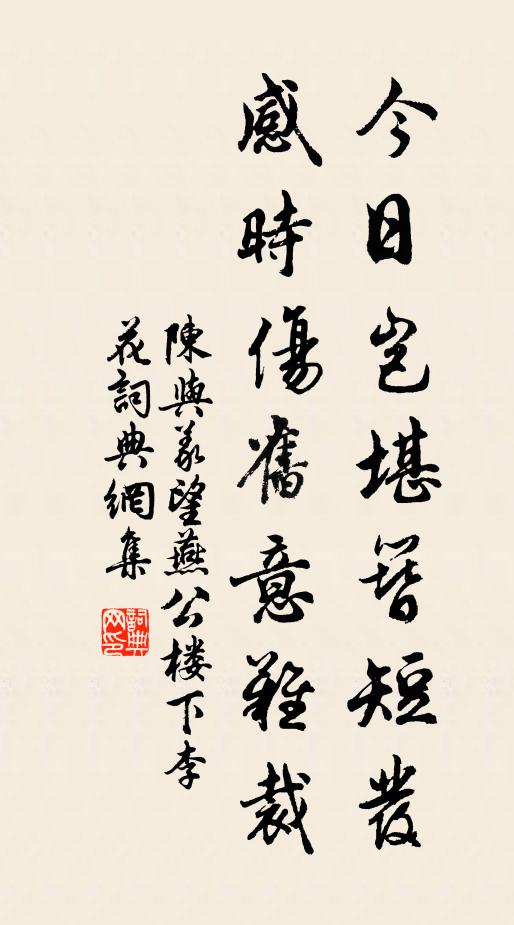 今日岂堪簪短發
感時傷舊意難裁
陳與義望燕公樓下李
花詞典網集
詞典
网印